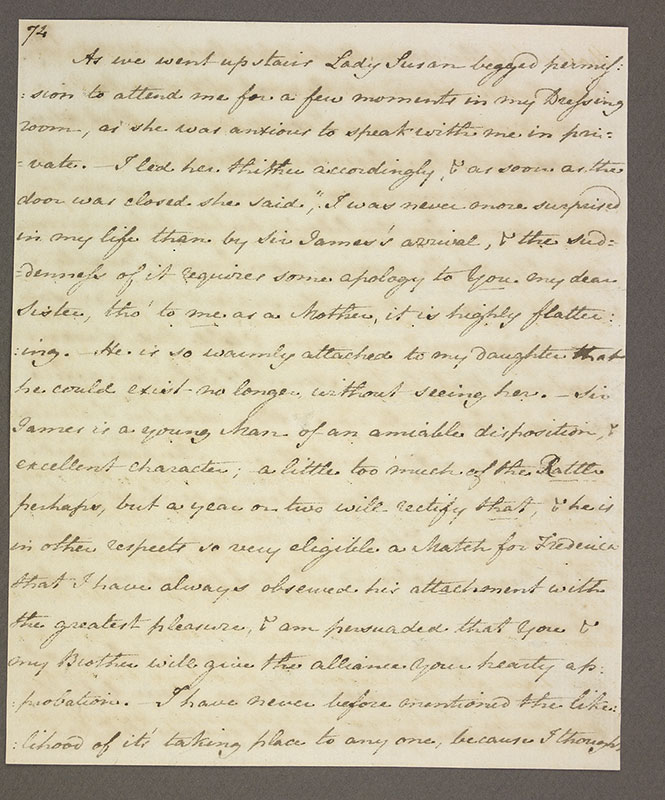 74
As we went upstairs Lady Susan begged permis:
:sion to attend me for a few moments in my Dressing
room, as she was anxious to speak with me in pri=
=vate. — I led her thither accordingly, & as soon as the
door was closed she said, "I was never more surprised
in my life than by Sir James's arrival, & the sud=
=denness of it requires some apology to You my dear
Sister, tho' to me as a Mother, it is highly flatter:
:ing. — He is so warmly attached to my daughter that
he could exist no longer without seeing her. — Sir
James is a young Man of an amiable disposition, &
excellent character; a little too much of the Rattle
perhaps, but a year or two will rectify that, & he is
in other respects so very eligible a Match for Frederica
that I have always observed his attachment with
the greatest pleasure, & am persuaded that You &
my Brother will give the alliance Your hearty ap:
:probation. — I have never before mentioned the like:
:lihood of it's taking place to any one, because I thought